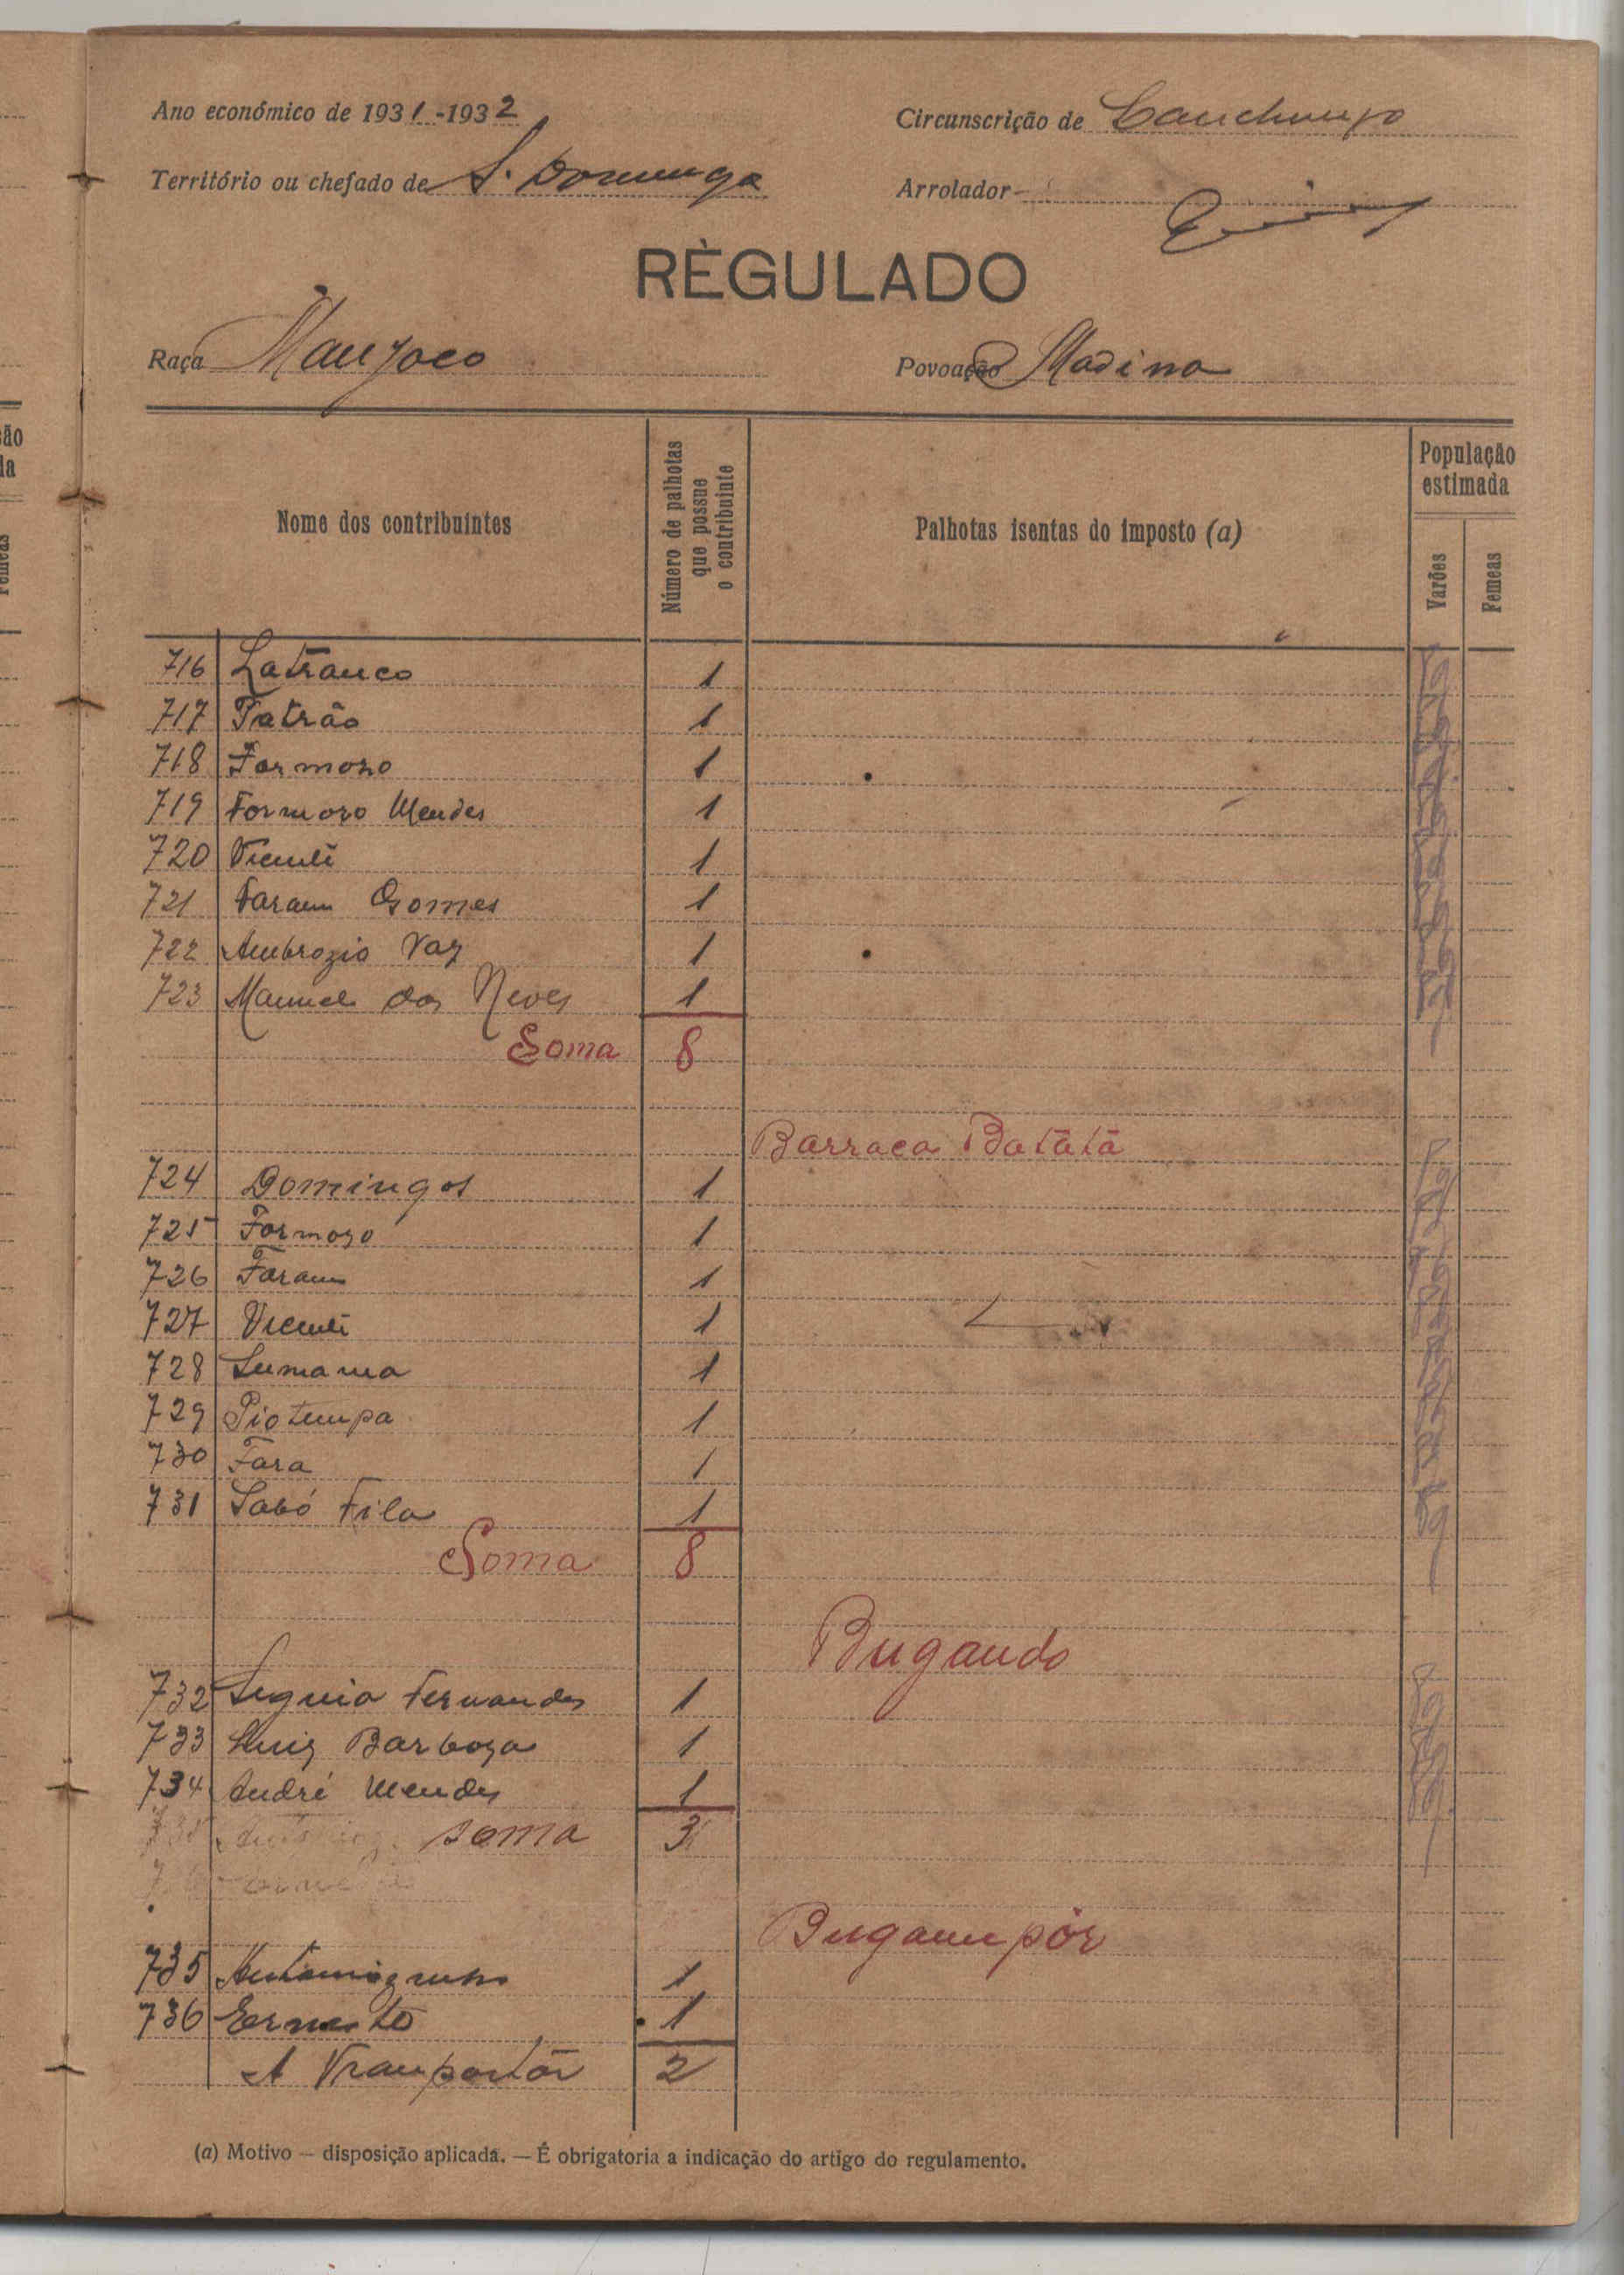 Ano económico de 1931-1932
Circunscrição de Canchungo
Território ou chefado de S. Domingos
Arrolador
RÈGULADO
Raça Manjaco
Povoação Madina
Nome dos contribuintes
Número de palhotas que possue o contribuinte
Palhotas isentas do imposto (a)
População estimada
Varões
Femeas
716 Latranco 1
717 Patrão 1
718 Formozo 1
719 Formozo Mendes 1
720 Vicenti 1
721 Faram Gomes 1
722 Ambrozio Vaz 1
723 Manuel das Neves 1
Soma 8
Barraca Batátá
724 Domingos 1
725 Formozo 1
726 Faram 1
727 Vicenti 1
728 Sumana 1
729 Piotempa 1
730 Fara 1
731 Sabó Fila 1
Soma 8
Bugando
732 Fernandes 1
733 Luiz Barboza 1
734 André Mendes 1
soma 3
735 1
736 Ernesto 1
A Transportár 2
(a) Motivo — disposição aplicada. — É obrigatoria a indicação do artigo do regulamento.